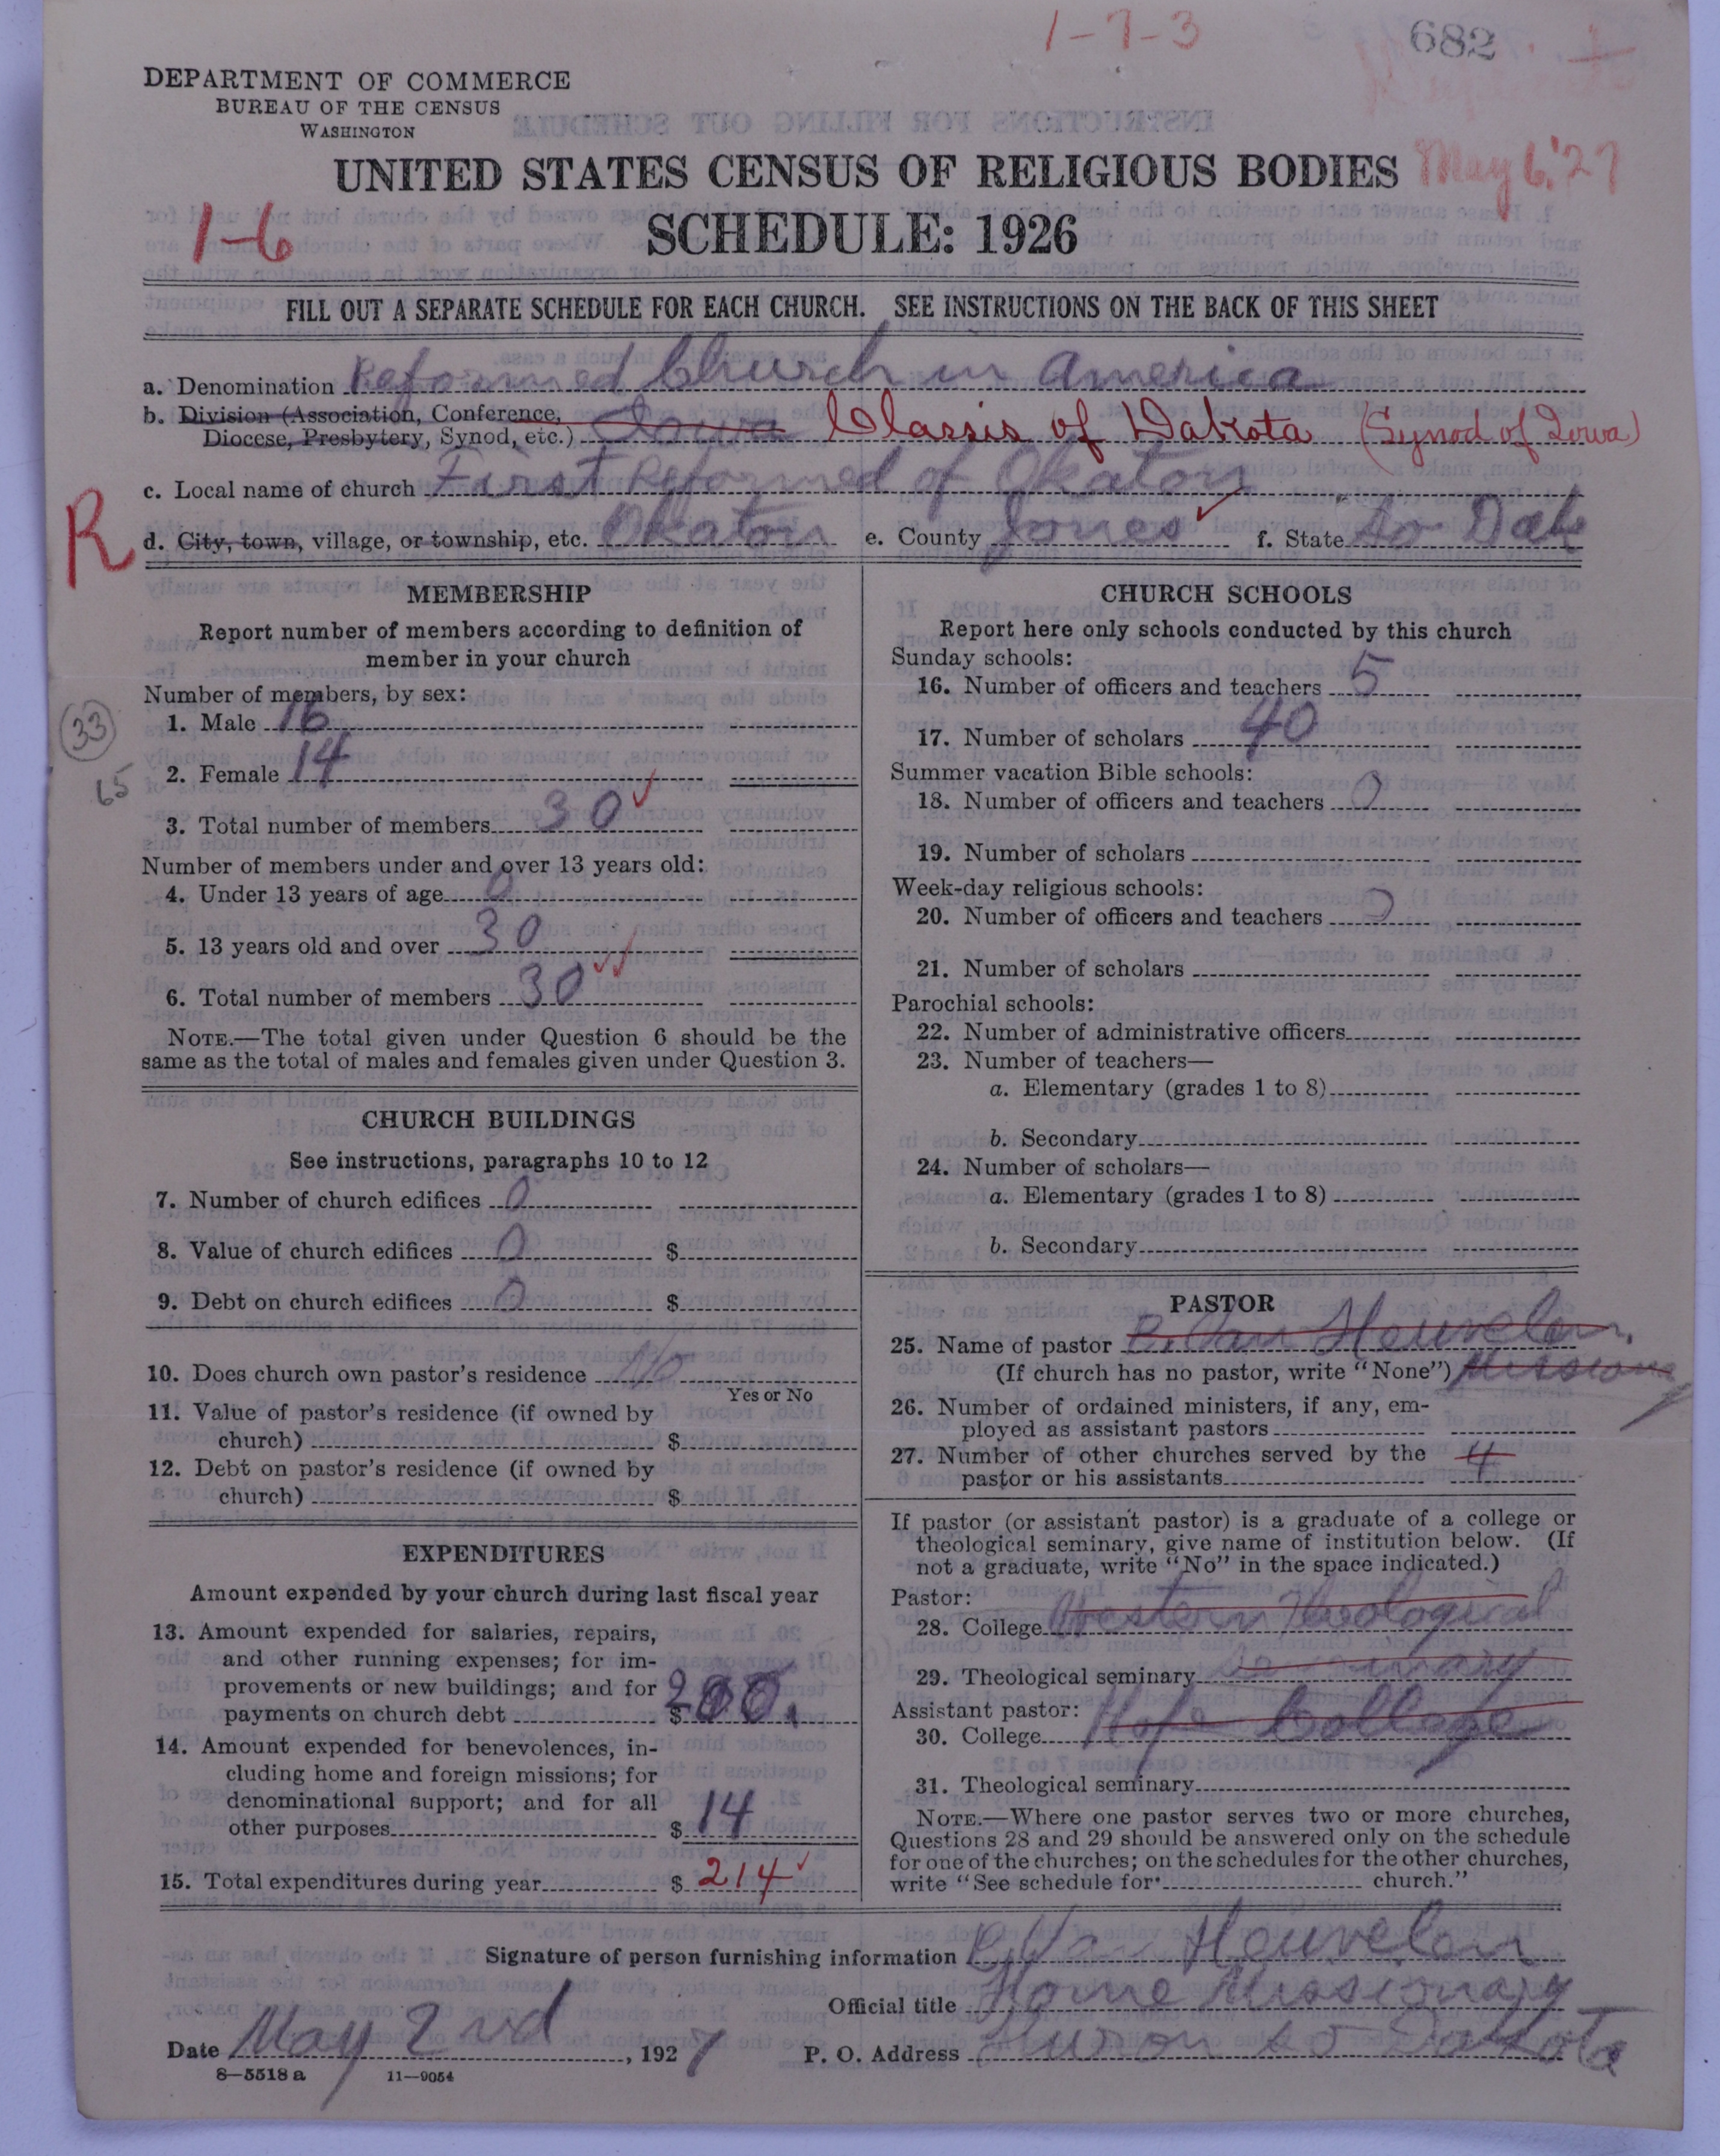 1-7-3
682
DEPARTMENT OF COMMERCE
BUREAU OF THE CENSUS
WASHINGTON
UNITED STATES CENSUS OF RELIGIOUS BODIES
May 6, '27
1-6
SCHEDULE: 1926
FILL OUT A SEPARATE SCHEDULE FOR EACH CHURCH. SEE INSTRUCTIONS ON THE BACK OF THIS SHEET
a. Denomination Reformed Church in America
b. Division (Association, Conference,
Diocese, Presbytery, Synod, etc.) Iowa Classis of Dakota (Synod of Iowa)
c. Local name of church First Reformed of Okaton
R
d. City, town, village, or township, etc. Okaton e. County Jones f. State So Dak
MEMBERSHIP
Report number of members according to definition of
member in your church
Number of members, by sex:
1. Male 16
33
2. Female 14
65
3. Total number of members 30
Number of members under and over 13 years old:
4. Under 13 years of age 0
5. 13 years old and over 30
6. Total number of members 30
NOTE.—The total given under Question 6 should be the
same as the total of males and females given under Question 3.
CHURCH BUILDINGS
See instructions, paragraphs 10 to 12
7. Number of church edifices 0
8. Value of church edifices 0 $
9. Debt on church edifices 0 $
10. Does church own pastor's residence No
Yes or No
11. Value of pastor's residence (if owned by
church) $
12. Debt on pastor's residence (if owned by
church) $
EXPENDITURES
Amount expended by your church during last fiscal year
13. Amount expended for salaries, repairs,
and other running expenses; for im-
provements or new buildings; and for
payments on church debt $ 200.
14. Amount expended for benevolences, in-
cluding home and foreign missions; for
denominational support; and for all
other purposes $ 14
15. Total expenditures during year $ 214
CHURCH SCHOOLS
Report here only schools conducted by this church
Sunday schools:
16. Number of officers and teachers 5
17. Number of scholars 40
Summer vacation Bible schools:
18. Number of officers and teachers 0
19. Number of scholars
Week-day religious schools:
20. Number of officers and teachers 0
21. Number of scholars
Parochial schools:
22. Number of administrative officers
23. Number of teachers—
a. Elementary (grades 1 to 8)
b. Secondary
24. Number of scholars—
a. Elementary (grades 1 to 8)
b. Secondary
PASTOR
25. Name of pastor B. Van Heuvelen,
(If church has no pastor, write "None") Missionary
26. Number of ordained ministers, if any, em-
ployed as assistant pastors
27. Number of other churches served by the
pastor or his assistants 4
If pastor (or assistant pastor) is a graduate of a college or
theological seminary, give name of institution below. (If
not a graduate, write "No" in the space indicated.)
Pastor:
28. College Western Theological
29. Theological seminary
Assistant pastor:
30. College Hope College
31. Theological seminary
NOTE.—Where one pastor serves two or more churches,
Questions 28 and 29 should be answered only on the schedule
for one of the churches; on the schedules for the other churches,
write "See schedule for church."
Signature of person furnishing information B. Van Heuvelen
Official title Home Missionary
Date May 2nd, 1927 P. O. Address Huron So Dakota
8—5518 a 11—9054